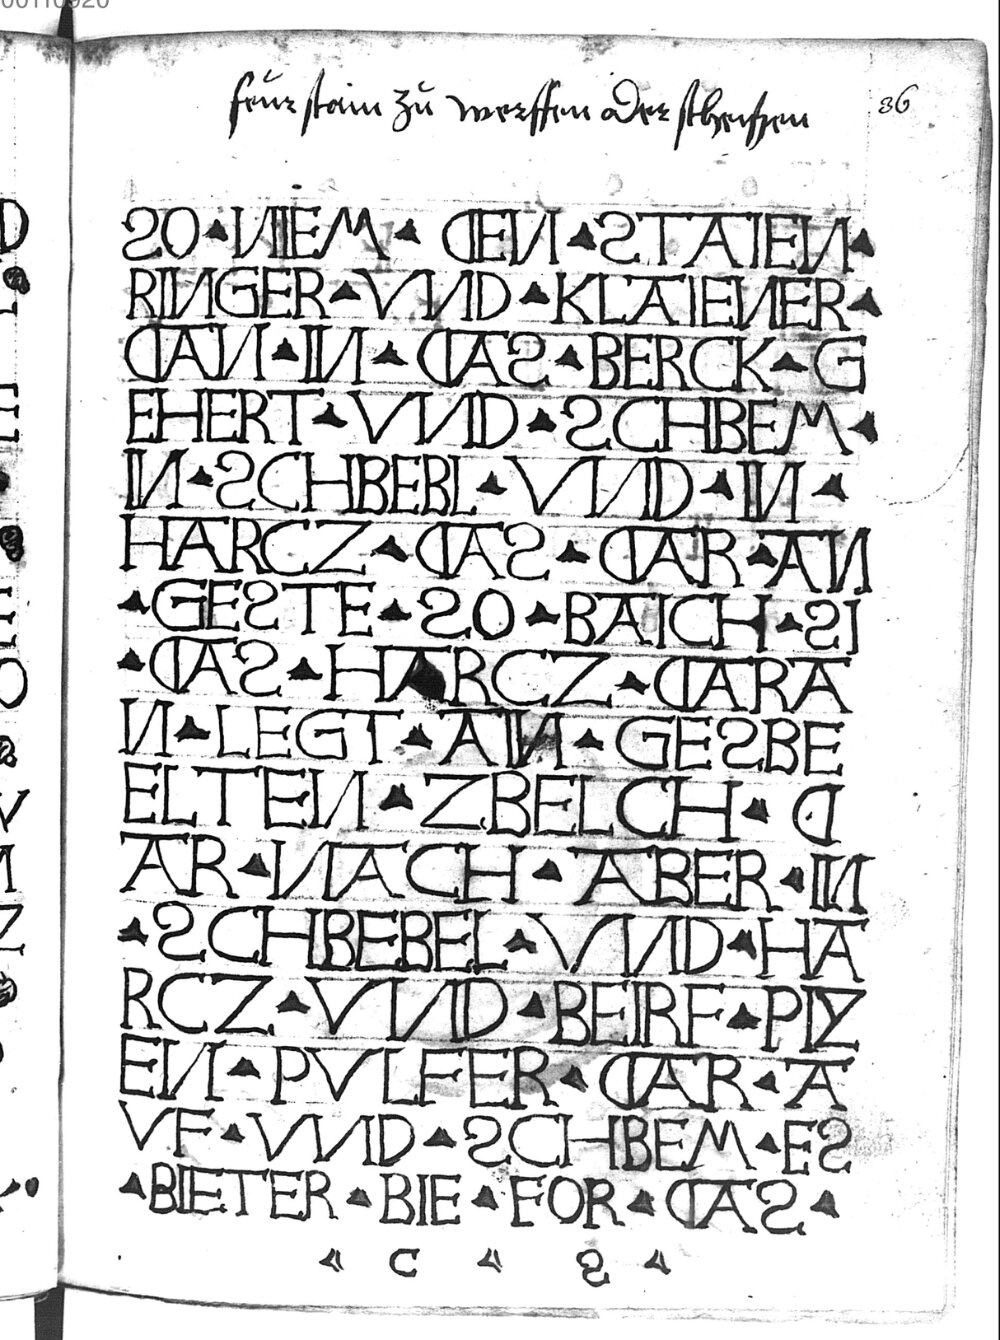 00110920
feür stain zů werffen oder sthenshen 36
SO ▲ NIEM ▲ DEN ▲ STAIEN ▲
RINGER ▲ VND ▲ KLAIENER ▲
DAN ▲ IN ▲ DAS ▲ BERCK ▲ G
EHERT ▲ VND ▲ SCHBEM ▲
IN ▲ SCHBEBL ▲ VND ▲ IN ▲
HARCZ ▲ DAS ▲ DAR ▲ AN
▲ GESTE ▲ SO ▲ BAICH ▲ SI
▲ DAS ▲ HARCZ ▲ DARA
N ▲ LEGT ▲ AIN ▲ GESBE
ELTEN ▲ ZBELCH ▲ D
AR ▲ NACH ▲ ABER ▲ IN
▲ SCHBEBEL ▲ VND ▲ HA
RCZ ▲ VND ▲ BEIRF ▲ PIX
EN ▲ PVLFER ▲ DAR ▲ A
VF ▲ VND ▲ SCHBEM ▲ ES
▲ BIETER ▲ BIE ▲ FOR ▲ DAS ▲
▲ C ▲ S ▲